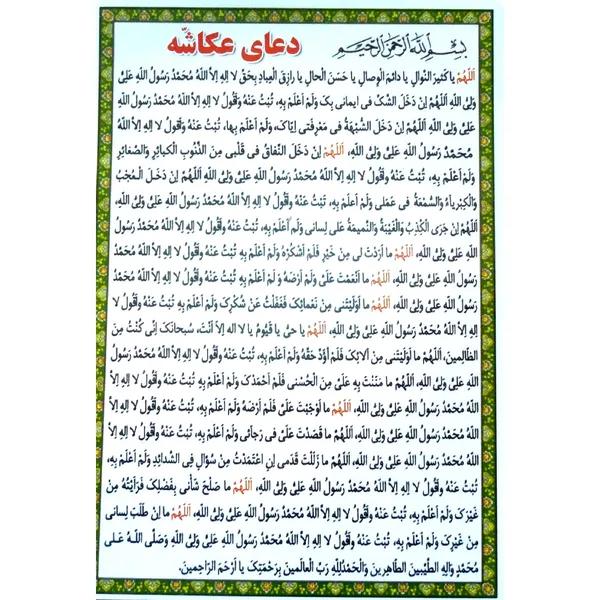 بِسْمِ اللهِ الرَّحْمنِ الرَّحیمِ دعای عکاشّه
اَللّهُمَّ یا کَثیرَ النَّوالِ یا دائِمَ الْوِصالِ یا حَسَنَ الْحالِ یا رازِقَ الْعِبادِ بِحَقِّ لا اِلهَ اِلاَّ اللهُ مُحَمَّدٌ رَسُولُ اللهِ عَلِیٌّ
وَلِیُّ اللهِ اَللّهُمَّ اِنْ دَخَلَ الشَّکُّ فی ایمانی بِکَ وَلَمْ اَعْلَمْ بِهِ، تُبْتُ عَنْهُ وَاَقُولُ لا اِلهَ اِلاَّ اللهُ مُحَمَّدٌ رَسُولُ اللهِ
عَلِیٌّ وَلِیُّ اللهِ اَللّهُمَّ اِنْ دَخَلَ الشُّبْهَةُ فی مَعْرِفَتی اِیّاکَ، وَلَمْ اَعْلَمْ بِها، تُبْتُ عَنْهُ وَاَقُولُ لا اِلهَ اِلاَّ اللهُ
مُحَمَّدٌ رَسُولُ اللهِ عَلِیٌّ وَلِیُّ اللهِ، اَللّهُمَّ اِنْ دَخَلَ النِّفاقُ فی قَلْبی مِنَ الذُّنُوبِ الْکَبائِرِ وَالصَّغائِرِ
وَلَمْ اَعْلَمْ بِهِ، تُبْتُ عَنْهُ وَاَقُولُ لا اِلهَ اِلاَّ اللهُ مُحَمَّدٌ رَسُولُ اللهِ عَلِیٌّ وَلِیُّ اللهِ اَللّهُمَّ اِنْ دَخَلَ الْعُجْبُ
وَالْکِبْرِیاءُ وَالسُّمْعَةُ فی عَمَلی وَلَمْ اَعْلَمْ بِهِ، تُبْتُ عَنْهُ وَاَقُولُ لا اِلهَ اِلاَّ اللهُ مُحَمَّدٌ رَسُولُ اللهِ عَلِیٌّ وَلِیُّ اللهِ،
اَللّهُمَّ اِنْ جَرَی الْکِذْبُ وَالْغَیْبَةُ وَالنَّمیمَةُ عَلی لِسانی وَلَمْ اَعْلَمْ بِهِ، تُبْتُ عَنْهُ وَاَقُولُ لا اِلهَ اِلاَّ اللهُ مُحَمَّدٌ رَسُولُ اللهِ
عَلِیٌّ وَلِیُّ اللهِ، اَللّهُمَّ ما اَرَدْتَ لی مِنْ خَیْرٍ فَلَمْ اَشْکُرْهُ وَلَمْ اَعْلَمْ بِهِ تُبْتُ عَنْهُ وَاَقُولُ لا اِلهَ اِلاَّ اللهُ مُحَمَّدٌ
رَسُولُ اللهِ عَلِیٌّ وَلِیُّ اللهِ، اَللّهُمَّ ما اَنْعَمْتَ عَلَیَّ وَلَمْ اَرْضَهُ وَ لَمْ اَعْلَمْ بِهِ تُبْتُ عَنْهُ وَاَقُولُ لا اِلهَ اِلاَّ اللهُ مُحَمَّدٌ
رَسُولُ اللهِ عَلِیٌّ وَلِیُّ اللهِ، اَللّهُمَّ ما اَوْلَیْتَنی مِنْ نَعْمائِکَ فَغَفَلْتُ عَنْ شُکْرِکَ وَلَمْ اَعْلَمْ بِهِ، تُبْتُ عَنْهُ وَاَقُولُ لا اِلهَ
اِلاَّ اللهُ مُحَمَّدٌ رَسُولُ اللهِ عَلِیٌّ وَلِیُّ اللهِ، اَللّهُمَّ یا حَیُّ یا قَیُّومُ یا لا اله اِلاّ اَنْتَ، سُبحانَکَ اِنّی کُنْتُ مِنَ
الظّالِمینَ، اَللّهُمَّ ما اَوْلَیْتَنی مِنْ آلائِکَ فَلَمْ اُؤَدِّ حَقَّهُ وَلَمْ اَعْلَمْ بِهِ، تُبْتُ عَنْهُ وَاَقُولُ لا اِلهَ اِلاَّ اللهُ مُحَمَّدٌ رَسُولُ
اللهِ عَلِیٌّ وَلِیُّ اللهِ، اَللّهُمَّ ما مَنَنْتَ بِهِ عَلَیَّ مِنَ الْحُسْنی فَلَمْ اَحْمَدْکَ وَلَمْ اَعْلَمْ بِهِ تُبْتُ عَنْهُ وَاَقُولُ لا اِلهَ اِلاَّ
اللهُ مُحَمَّدٌ رَسُولُ اللهِ عَلِیٌّ وَلِیُّ اللهِ، اَللّهُمَّ ما اَوْجَبْتَ عَلَیَّ فَلَمْ اَرْضَهُ وَلَمْ اَعْلَمْ بِهِ، تُبْتُ عَنْهُ وَاَقُولُ لا اِلهَ اِلاَّ
اللهُ مُحَمَّدٌ رَسُولُ اللهِ عَلِیٌّ وَلِیُّ اللهِ، اَللّهُمَّ ما قَصَدْتَ عَلَیَّ فی رَجائی وَلَمْ اَعْلَمْ بِهِ، تُبْتُ عَنْهُ وَاَقُولُ لا اِلهَ اِلاَّ
اللهُ مُحَمَّدٌ رَسُولُ اللهِ عَلِیٌّ وَلِیُّ اللهِ، اَللّهُمَّ ما زَلَلَتْ قَدَمی اِنِ اعْتَمَدْتُ مِنْ سُؤالٍ فِی الشَّدائِدِ وَلَمْ اَعْلَمْ بِهِ،
تُبْتُ عَنْهُ وَاَقُولُ لا اِلهَ اِلاَّ اللهُ مُحَمَّدٌ رَسُولُ اللهِ عَلِیٌّ وَلِیُّ اللهِ، اَللّهُمَّ ما صَلُحَ شَأْنی بِفَضْلِکَ فَرَاَیْتُهُ مِنْ
غَیْرِکَ وَلَمْ اَعْلَمْ بِهِ، تُبْتُ عَنْهُ وَاَقُولُ لا اِلهَ اِلاَّ اللهُ مُحَمَّدٌ رَسُولُ اللهِ عَلِیٌّ وَلِیُّ اللهِ، اَللّهُمَّ ما اِنْ طَلَبَ لِسانی
مِنْ غَیْرِکَ وَلَمْ اَعْلَمْ بِهِ، تُبْتُ عَنْهُ وَاَقُولُ لا اِلهَ اِلاَّ اللهُ مُحَمَّدٌ رَسُولُ اللهِ عَلِیٌّ وَلِیُّ اللهِ وَصَلَّی اللهُ عَلی
مُحَمَّدٍ وَالِهِ الطَّیِّبینَ الطّاهِرینَ وَالْحَمْدُلِلّهِ رَبِّ الْعالَمینَ بِرَحْمَتِکَ یا اَرْحَمَ الرّاحِمینَ.